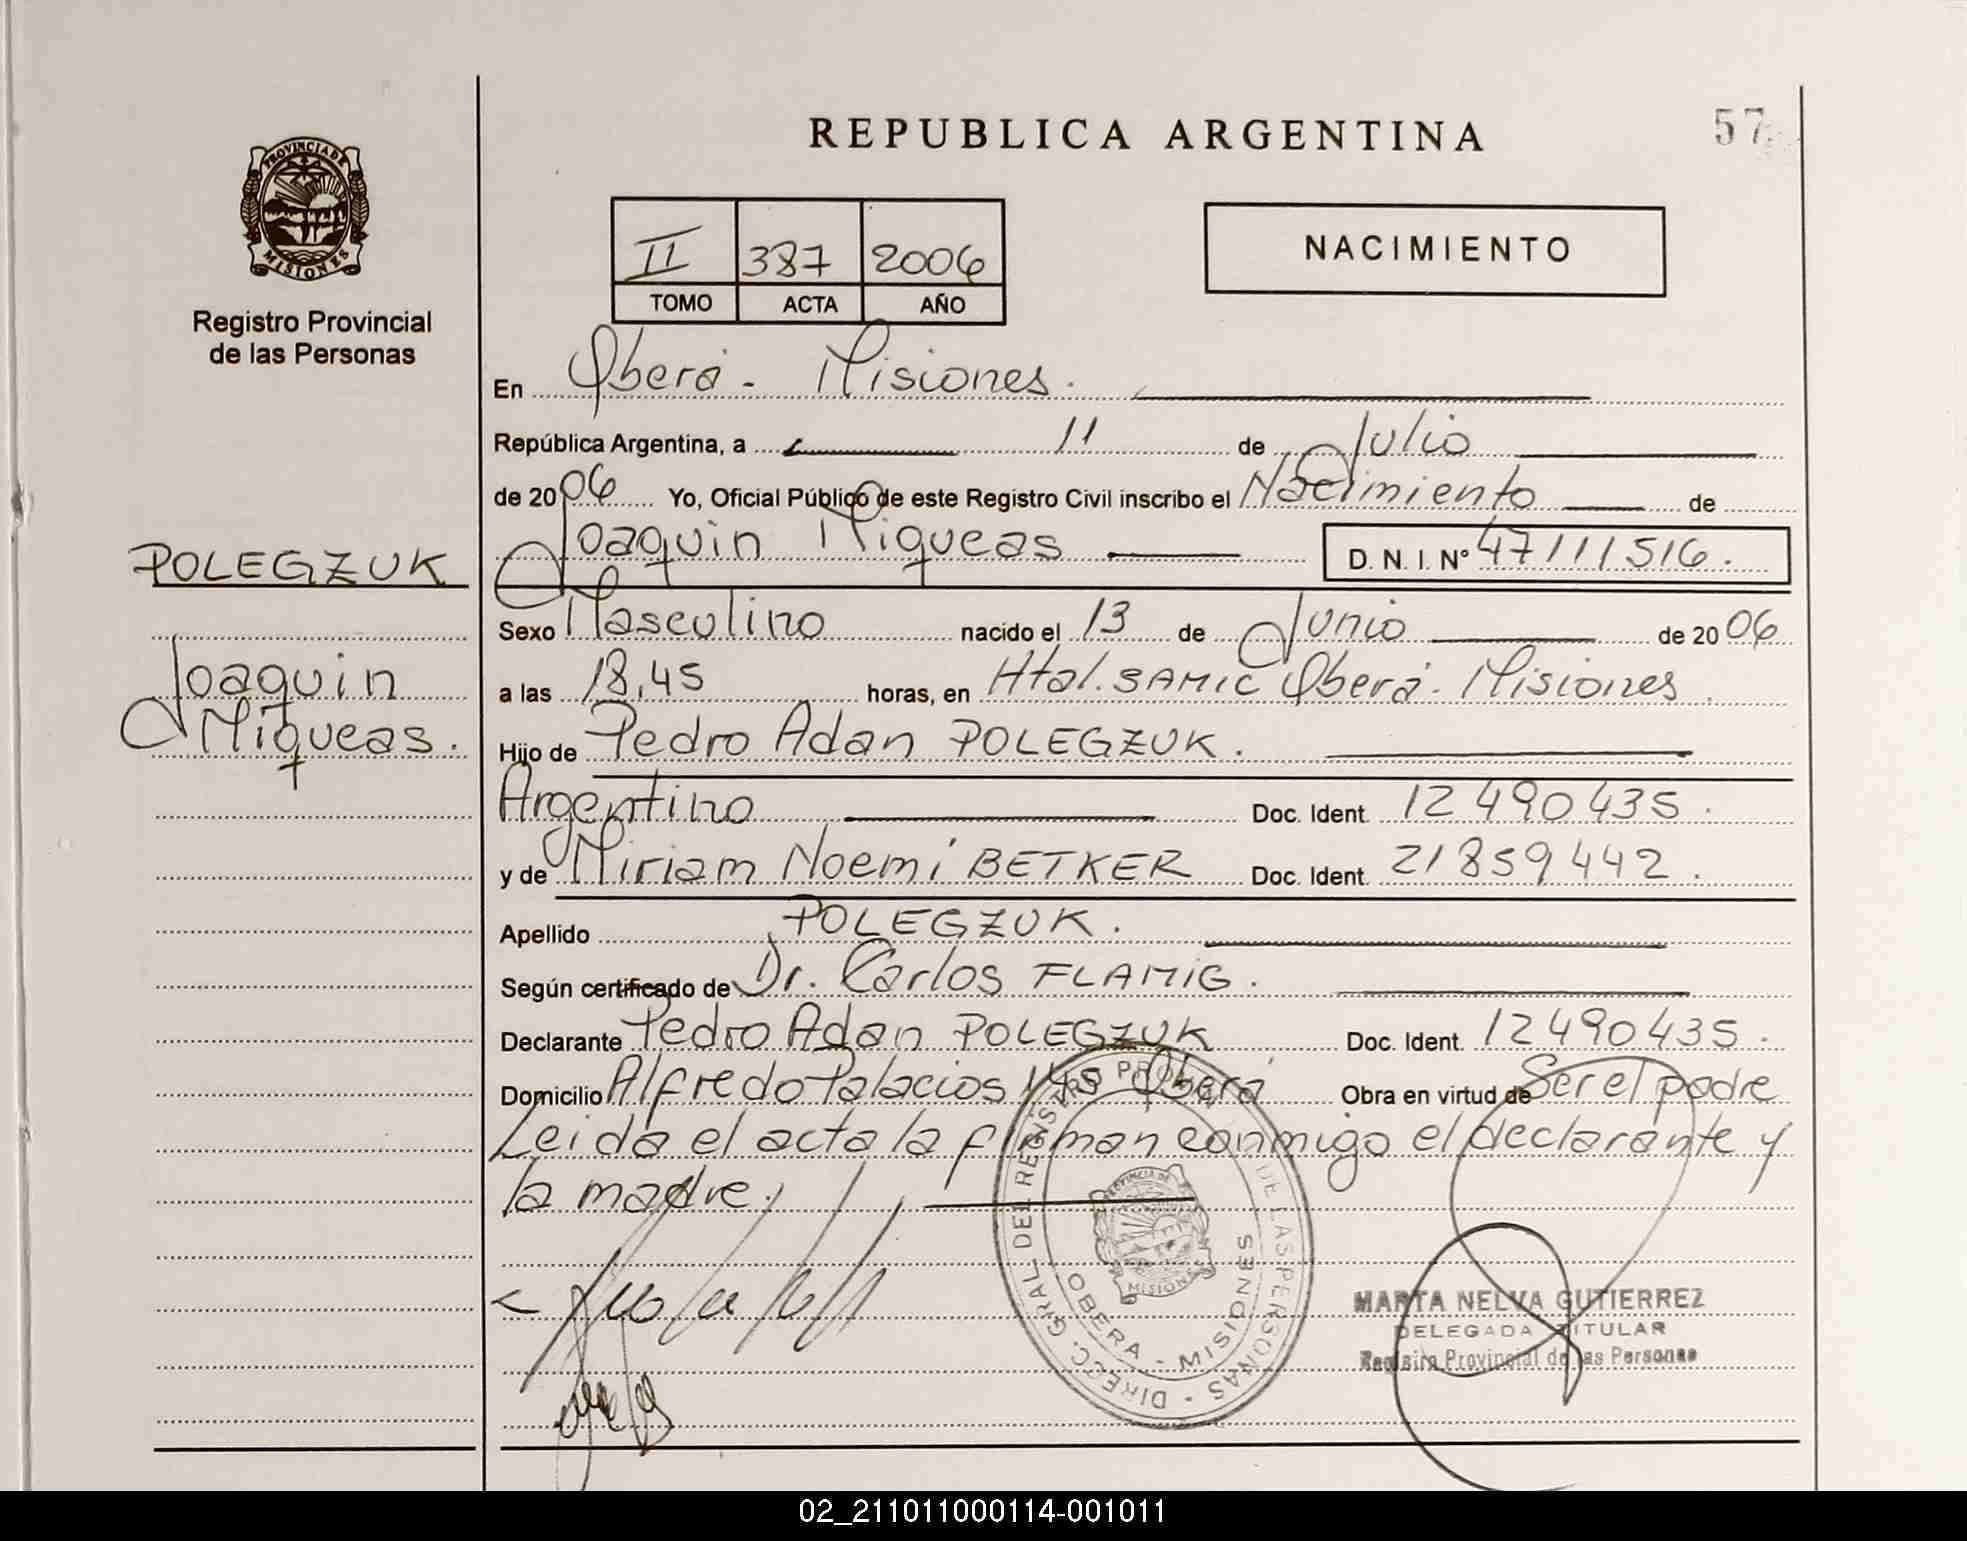 REPUBLICA ARGENTINA
57
PROVINCIA DE
MISIONES
Registro Provincial
de las Personas
II 387 2006
TOMO ACTA AÑO
NACIMIENTO
En Oberá - Misiones.
República Argentina, a 11 de Julio
de 2006 Yo, Oficial Público de este Registro Civil inscribo el Nacimiento de
Joaquin Miqueas D. N. I. Nº 47111516.
POLEGZUK
Joaquin
Miqueas.
Sexo Masculino nacido el 13 de Junio de 2006
a las 18,45 horas, en Htal. SAMIC Oberá - Misiones.
Hijo de Pedro Adan POLEGZUK.
Argentino Doc. Ident. 12490435.
y de Miriam Noemí BETKER Doc. Ident. 21859442.
Apellido POLEGZUK.
Según certificado de Dr. Carlos FLAMIG.
Declarante Pedro Adan POLEGZUK Doc. Ident. 12490435.
Domicilio Alfredo Palacios 145 Oberá Obra en virtud de Ser el padre
Leida el acta la firman conmigo el declarante y
la madre.
DIRECC. GRAL DEL REGISTRO PROV. DE LAS PERSONAS
PROVINCIA DE
MISIONES
OBERA - MISIONES
MARTA NELVA GUTIERREZ
DELEGADA TITULAR
Registro Provincial de las Personas
02_211011000114-001011